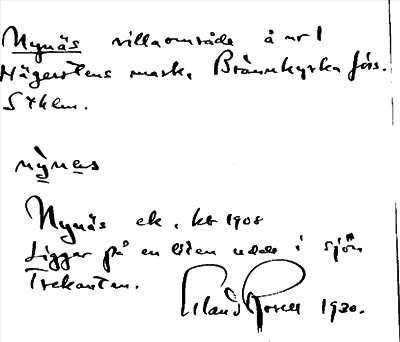 Nynäs villaområde å nr 1
Hägerstens mark, Brännkyrka förs.
Sthlm.
nỳnas
Nynäs ek. kb 1908
Ligger på en liten udde i sjön
Trekanten.
1930.